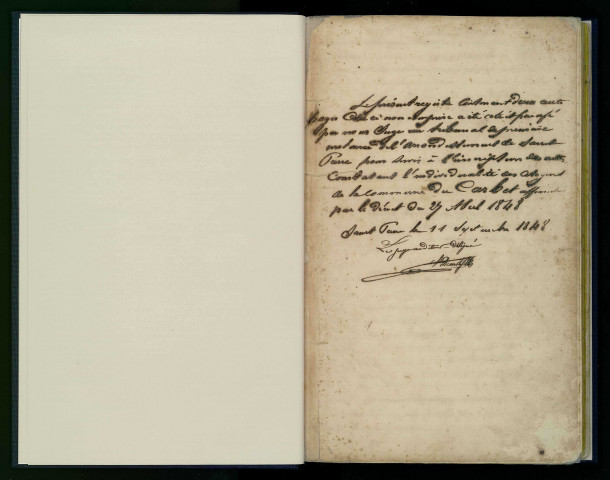 Le présent registre contenant deux cents
pages celle ci non comprise a été coté et paraphé
par nous Juge au tribunal de première
instance de l'arrondissement de Saint
Pierre pour servir à l'inscription des actes
Constatant l'individualité des citoyens
de la commune du Carbet affranchis
par le décret du 27 Avril 1848
Saint Pierre le 11 Septembre 1848
Le juge auditeur délégué